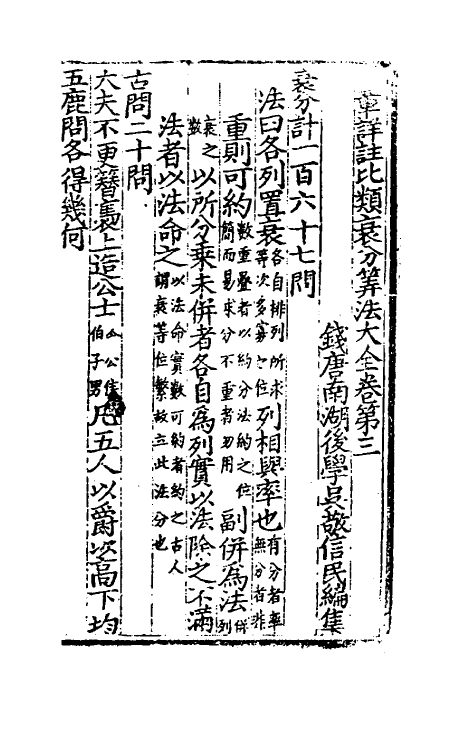 章詳註比類衰分筭法大全卷第三
錢唐南湖後學吳敬信民編集
衰分計一百六十七問
法曰各列置衰各自排列所求等次多寡之位列相與率也有分者率無分者非
重則可約數重疊者以約分法約之位簡而易求分不重者勿用副併為法併列
衰之數以所分乘未併者各自為列實以法除之不滿
法者以法命之以法命實數可約者約之古人謂衰等位繁故立此法分也
古問二十問
大夫不更簪褭上造公士公侯伯子男凡五人以爵次高下均
五鹿問各得幾何